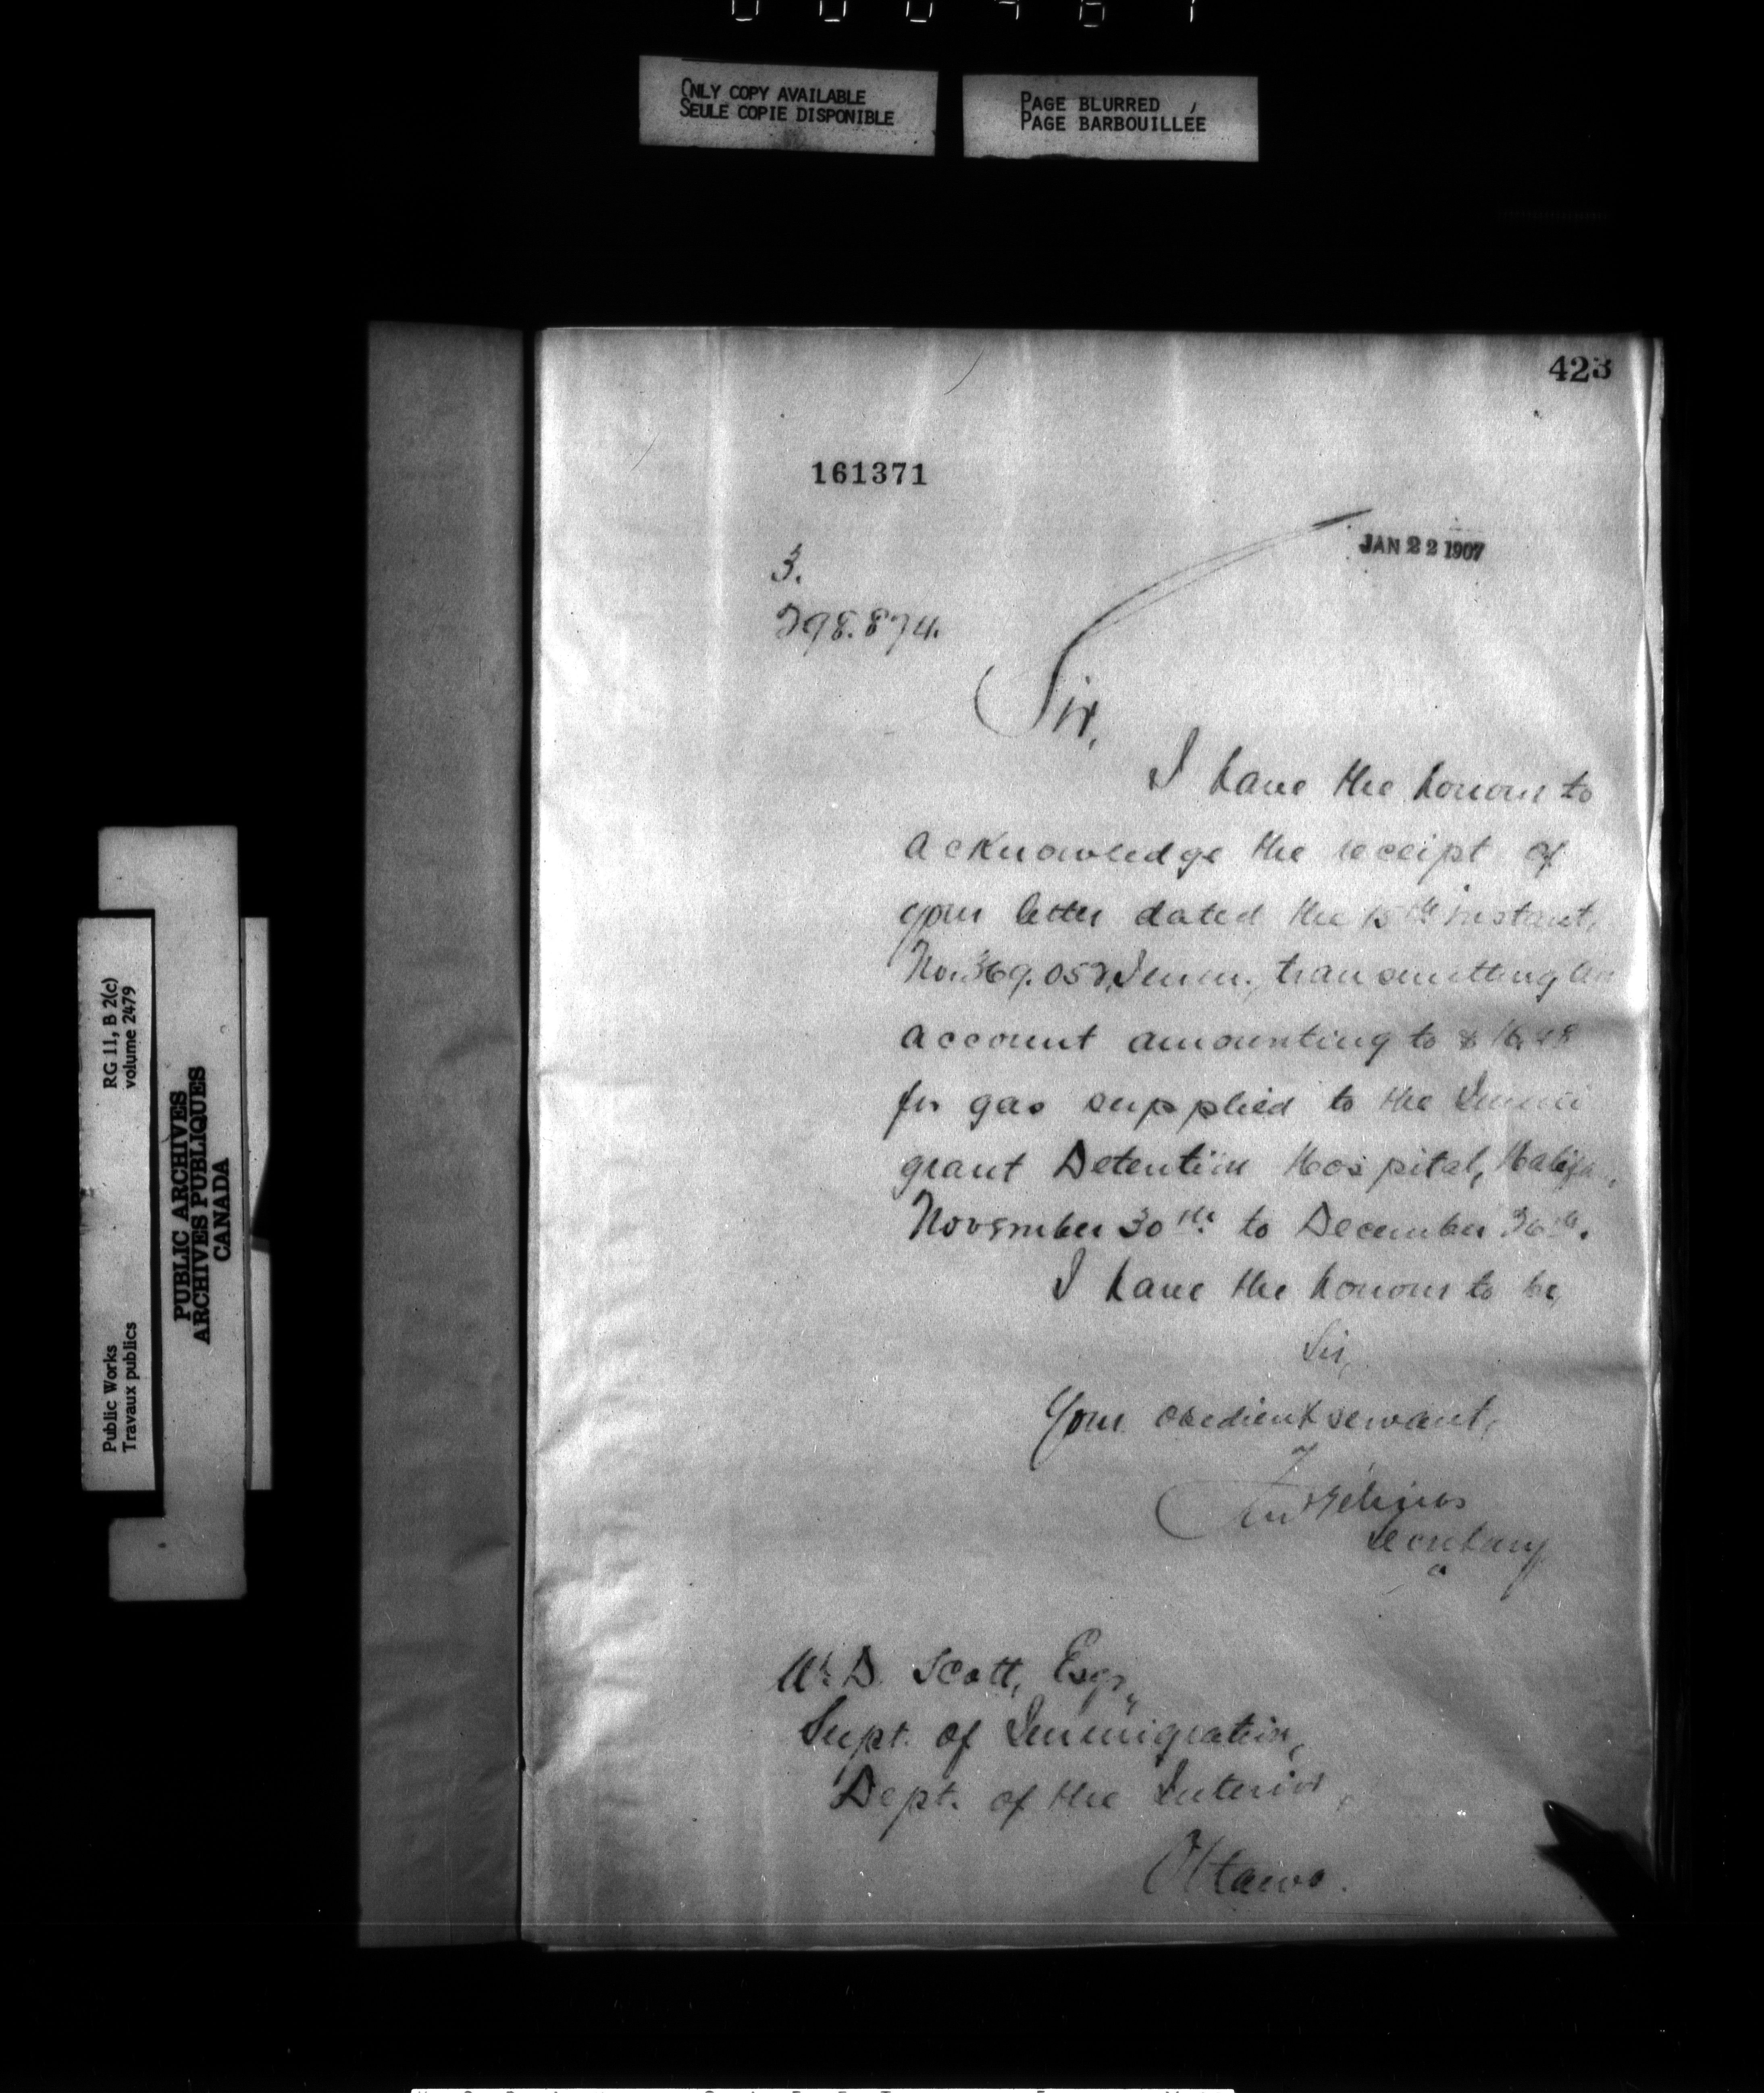 ONLY COPY AVAILABLE
SEULE COPIE DISPONIBLE
PAGE BLURRED
PAGE BARBOUILLÉE
423
161371
JAN 22 1907
3.
298.874.
Sir,
I have the honour to
acknowledge the receipt of
your letter dated the 15th instant,
No. 369.052, Immn., transmitting an
account amounting to $
for gas supplied to the Immi
grant Detention Hospital, Halifax,
November 30th to December
I have the honour to be,
Sir,
Your obedient servant,
Fred Gélinas
Secretary
W. D. Scott, Esqr.,
Supt. of Immigration,
Dept. of the Interior,
Ottawa.
RG 11, B 2(c)
volume 2479
Public Works
Travaux publics
PUBLIC ARCHIVES
ARCHIVES PUBLIQUES
CANADA